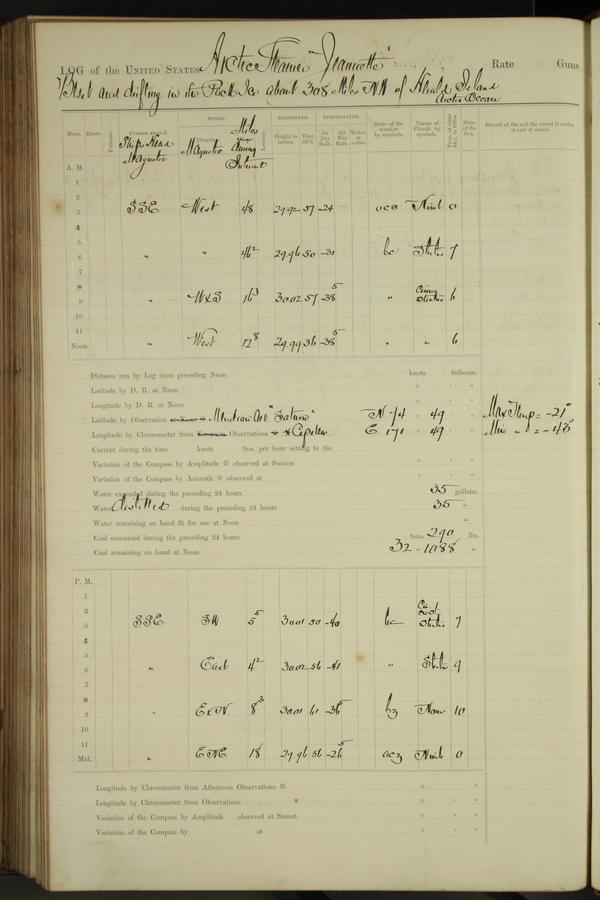 LOG of the UNITED STATES Arctic Steamer "Jeannette" Rate Guns
Beset and drifting in the Pack Ice about 308 Miles NW of Herald Island
Arctic Ocean
Hour. Knots. Fathoms. Courses steered. WINDS. BAROMETER. TEMPERATURE. State of the weather by symbols. Forms of Clouds by symbols. State of the Sea. Record of the sail the vessel is under at end of watch.
Ship's Head Magnetic Direction Magnetic Miles during Interval Leeway Height in inches. Ther. att'd. Air Dry Bulb. Air Wet Bulb. Water at surface.
A. M.
1
2
3 SSE West 48 29.92 57 -24 ocs Nimb 0
4
5
6 " " 46² 29.96 50 -31 bc Stratus 7
7
8
9 " W x S 16³ 30.02 57 -38⁵ " Cirrus Stratus 6
10
11
Noon. " West 12⁸ 29.99 36 -38⁵ " " 6
Distance run by Log since preceding Noon knots fathoms.
Latitude by D. R. at Noon ° ' "
Longitude by D. R. at Noon ° ' "
Latitude by Observation Meridian Alt. "Saturn" N 74 49 Max Temp = -21°
Longitude by Chronometer from Observations * Capella E 171 49 Min " = -43°
Current during the time knots fms. per hour setting to the
Variation of the Compass by Amplitude observed at Sunrise
Variation of the Compass by Azimuth observed at
Water expended during the preceding 24 hours 35 gallons.
Water distilled during the preceding 24 hours 35 "
Water remaining on hand fit for use at Noon "
Coal consumed during the preceding 24 hours tons, 290 lbs.
Coal remaining on hand at Noon 32 " 1088 "
P. M.
1
2
3 SSE SW 5⁵ 30.01 50 -40 bc Cir Cust Stratus 7
4
5
6 " East 4² 30.02 56 -41 " Stratus 9
7
8
9 " E x N 8³ 30.01 61 -36⁵ bz None 10
10
11
Mid. " ENE 18 29.96 56 -26⁵ ocz Nimb 0
Longitude by Chronometer from Afternoon Observations ° ' "
Longitude by Chronometer from Observations * ° ' "
Variation of the Compass by Amplitude observed at Sunset ° ' "
Variation of the Compass by at ° ' "